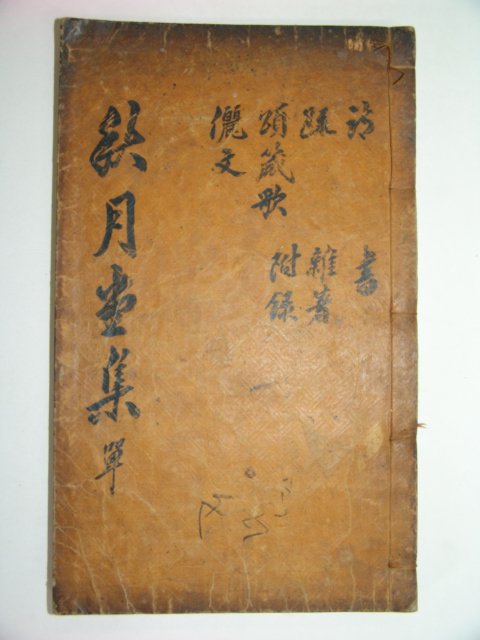 詩 書
疏 雜著
頌箴歌 附錄
儷文
秋月堂集 單